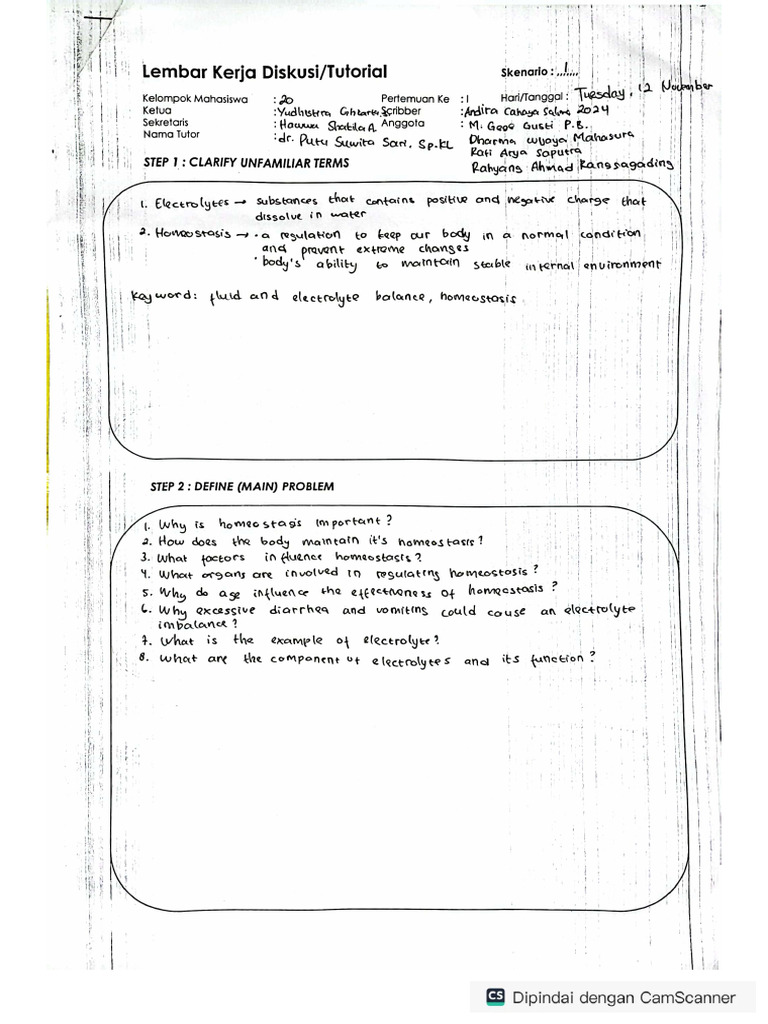 Lembar Kerja Diskusi/Tutorial
Skenario : ...1....
Kelompok Mahasiswa : 20 Pertemuan Ke : 1 Hari/Tanggal : Tuesday, 12 November 2024
Ketua : Yudhistira Scribber : Andira Cahaya
Sekretaris : Hawwa Shatila A. Anggota : M. Gege Gusti P.B.,
Nama Tutor : dr. Putu Suwita Sari, Sp.KL
Dharma Wijaya Mahasura
Rafi Arya Saputra
Rahyang Ahmad
STEP 1 : CLARIFY UNFAMILIAR TERMS
1. Electrolytes → substances that contains positive and negative charge that
dissolve in water
2. Homeostasis → • a regulation to keep our body in a normal condition
and prevent extreme changes
• body's ability to maintain stable internal environment
Keyword: fluid and electrolyte balance, homeostasis
STEP 2 : DEFINE (MAIN) PROBLEM
1. Why is homeostasis important?
2. How does the body maintain it's homeostasis?
3. What factors influence homeostasis?
4. What organs are involved in regulating homeostasis?
5. Why do age influence the effectiveness of homeostasis?
6. Why excessive diarrhea and vomiting could cause an electrolyte
imbalance?
7. What is the example of electrolyte?
8. What are the component of electrolytes and its function?
CS Dipindai dengan CamScanner